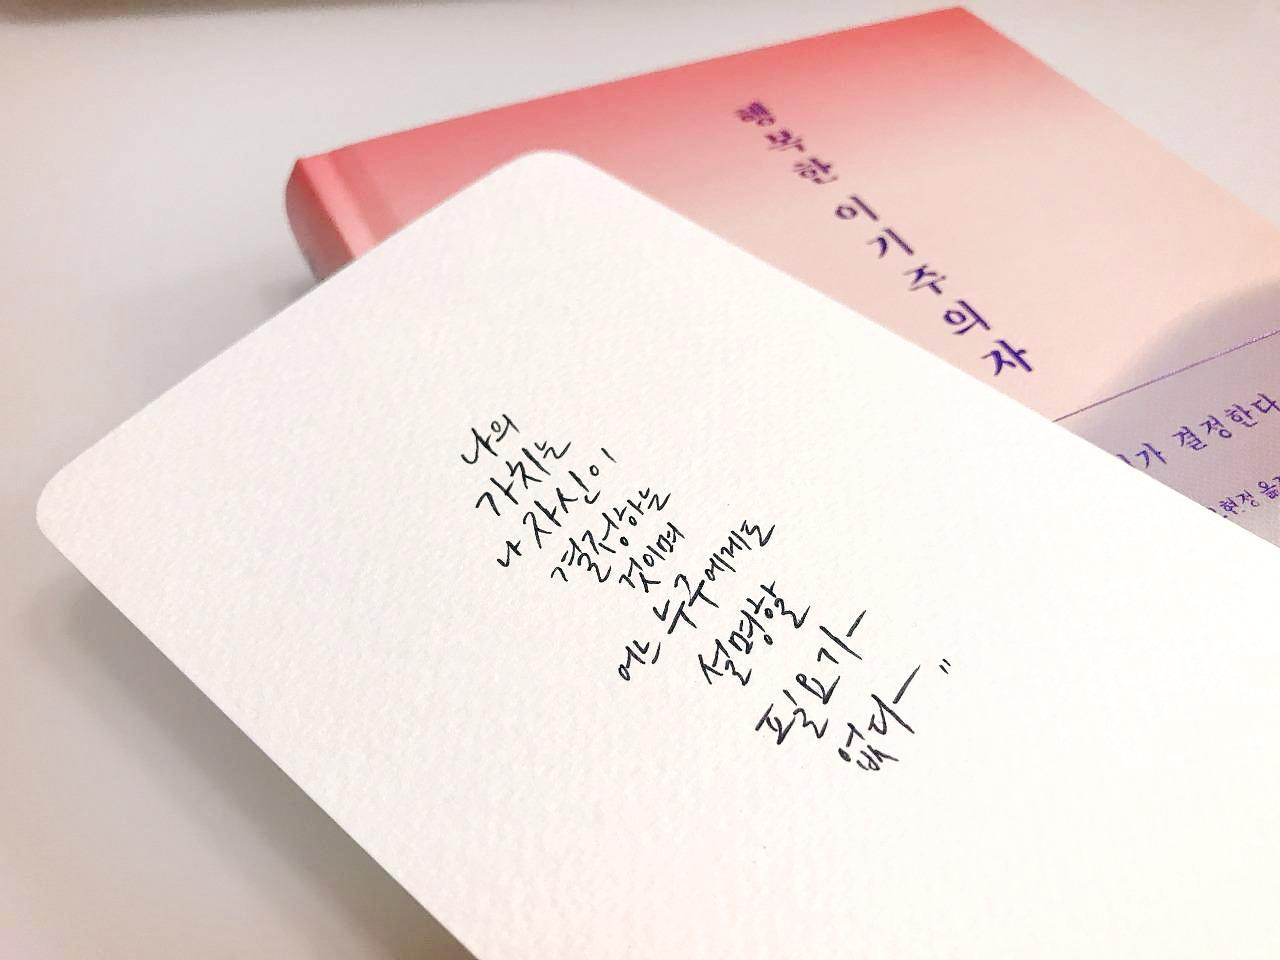 행복한 이기주의자
가 결정한다
현정 옮김
나의
가치는
나 자신이
결정하는
것이며
어느 누구에게도
설명할
필요가
없다"